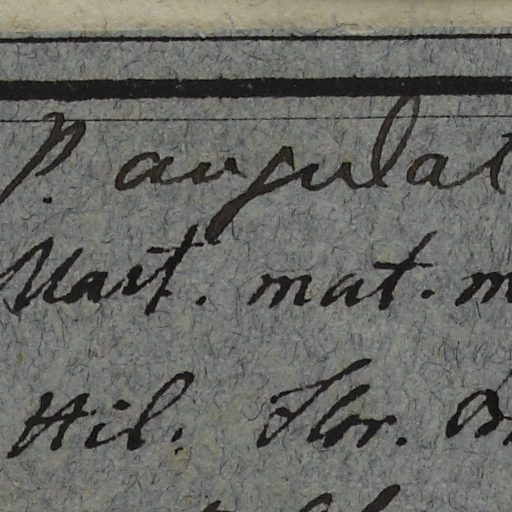 P. angulat
Mart. mat. m
Hil. Flor. B